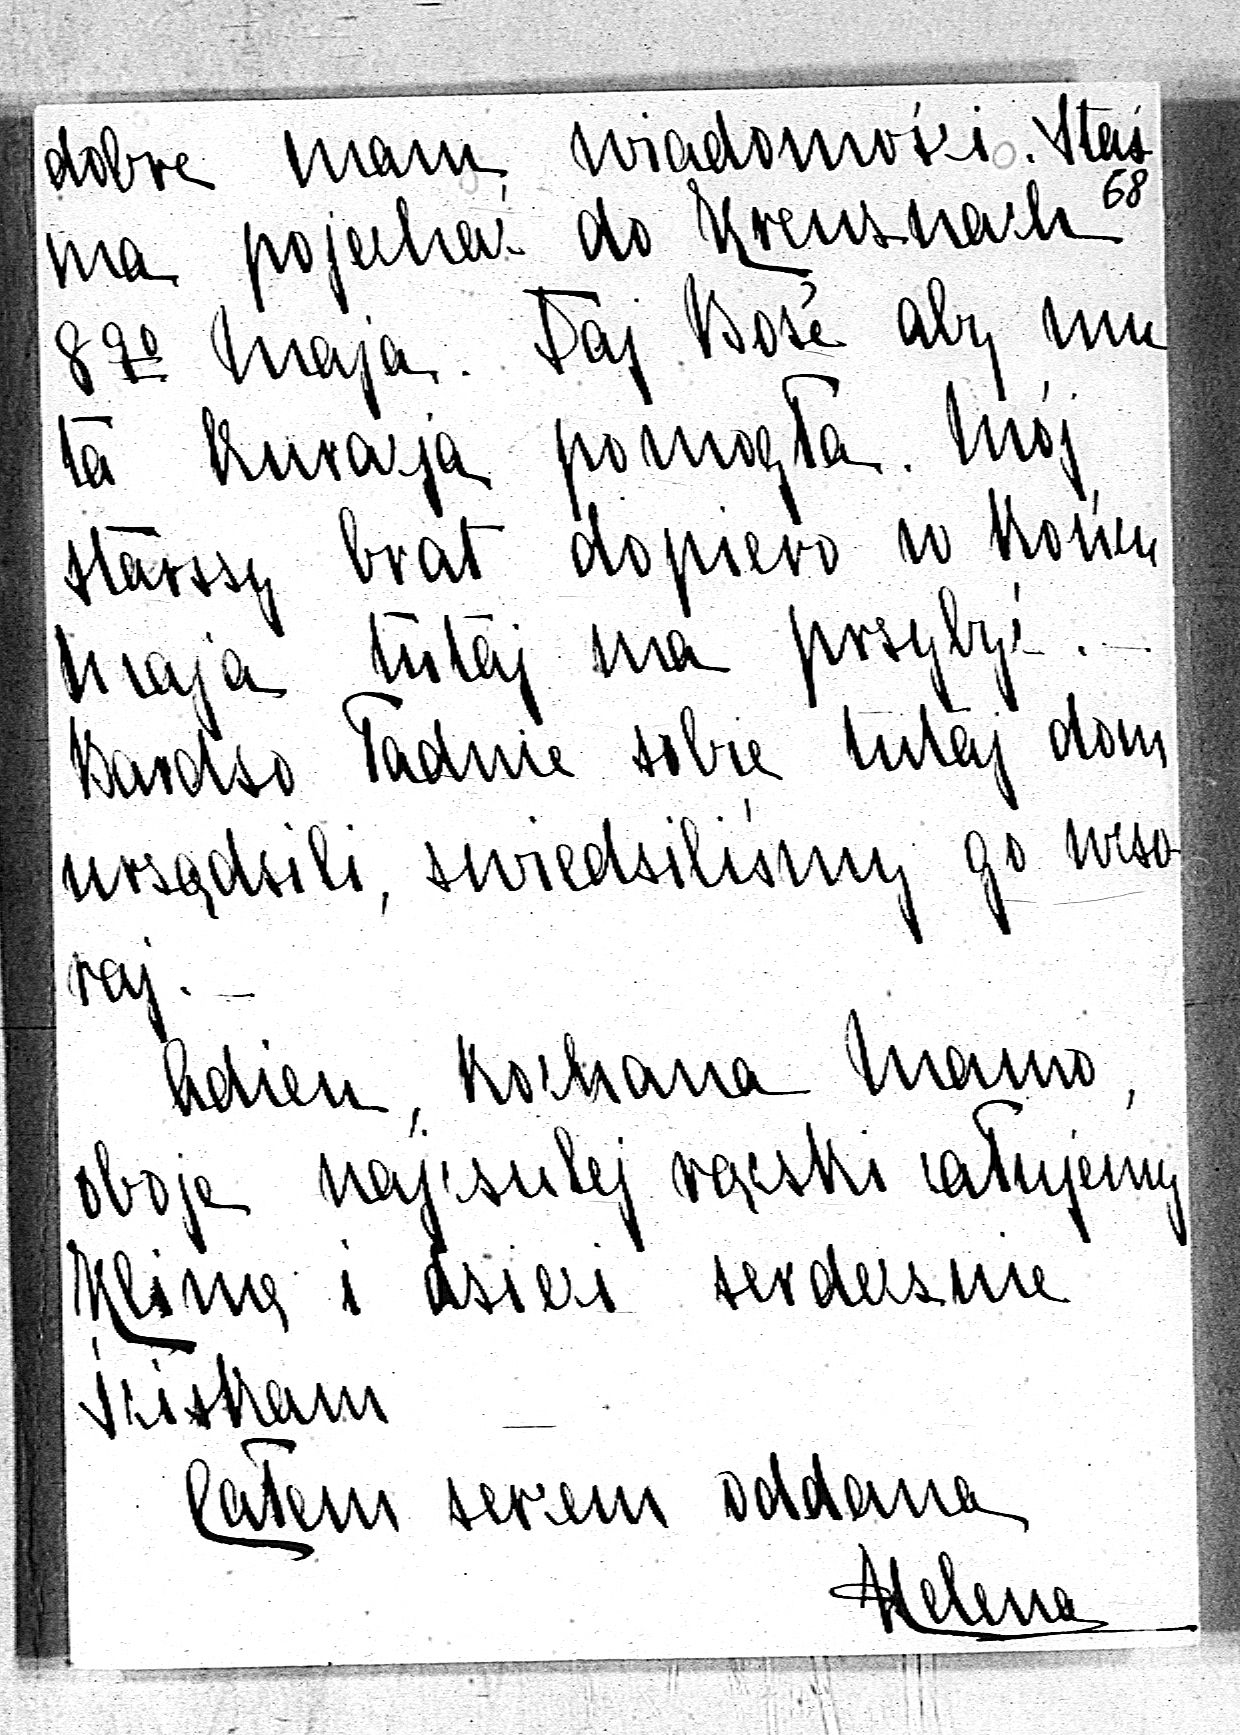 dobre mam wiadomości. Staś
68
ma pojechać do Kreuznach
8go maja. Daj Boże aby mu
ta kuracja pomogła. Mój
starszy brat dopiero w końcu
maja tutaj ma przybyć. —
Bardzo ładnie sobie tutaj dom
urządzili, zwiedziliśmy go wczo
raj. —
Adieu, kochana Mamo,
oboje najczulej rączki całujemy
Klimę i dzieci serdecznie
ściskam
Całem sercem oddana
Helena